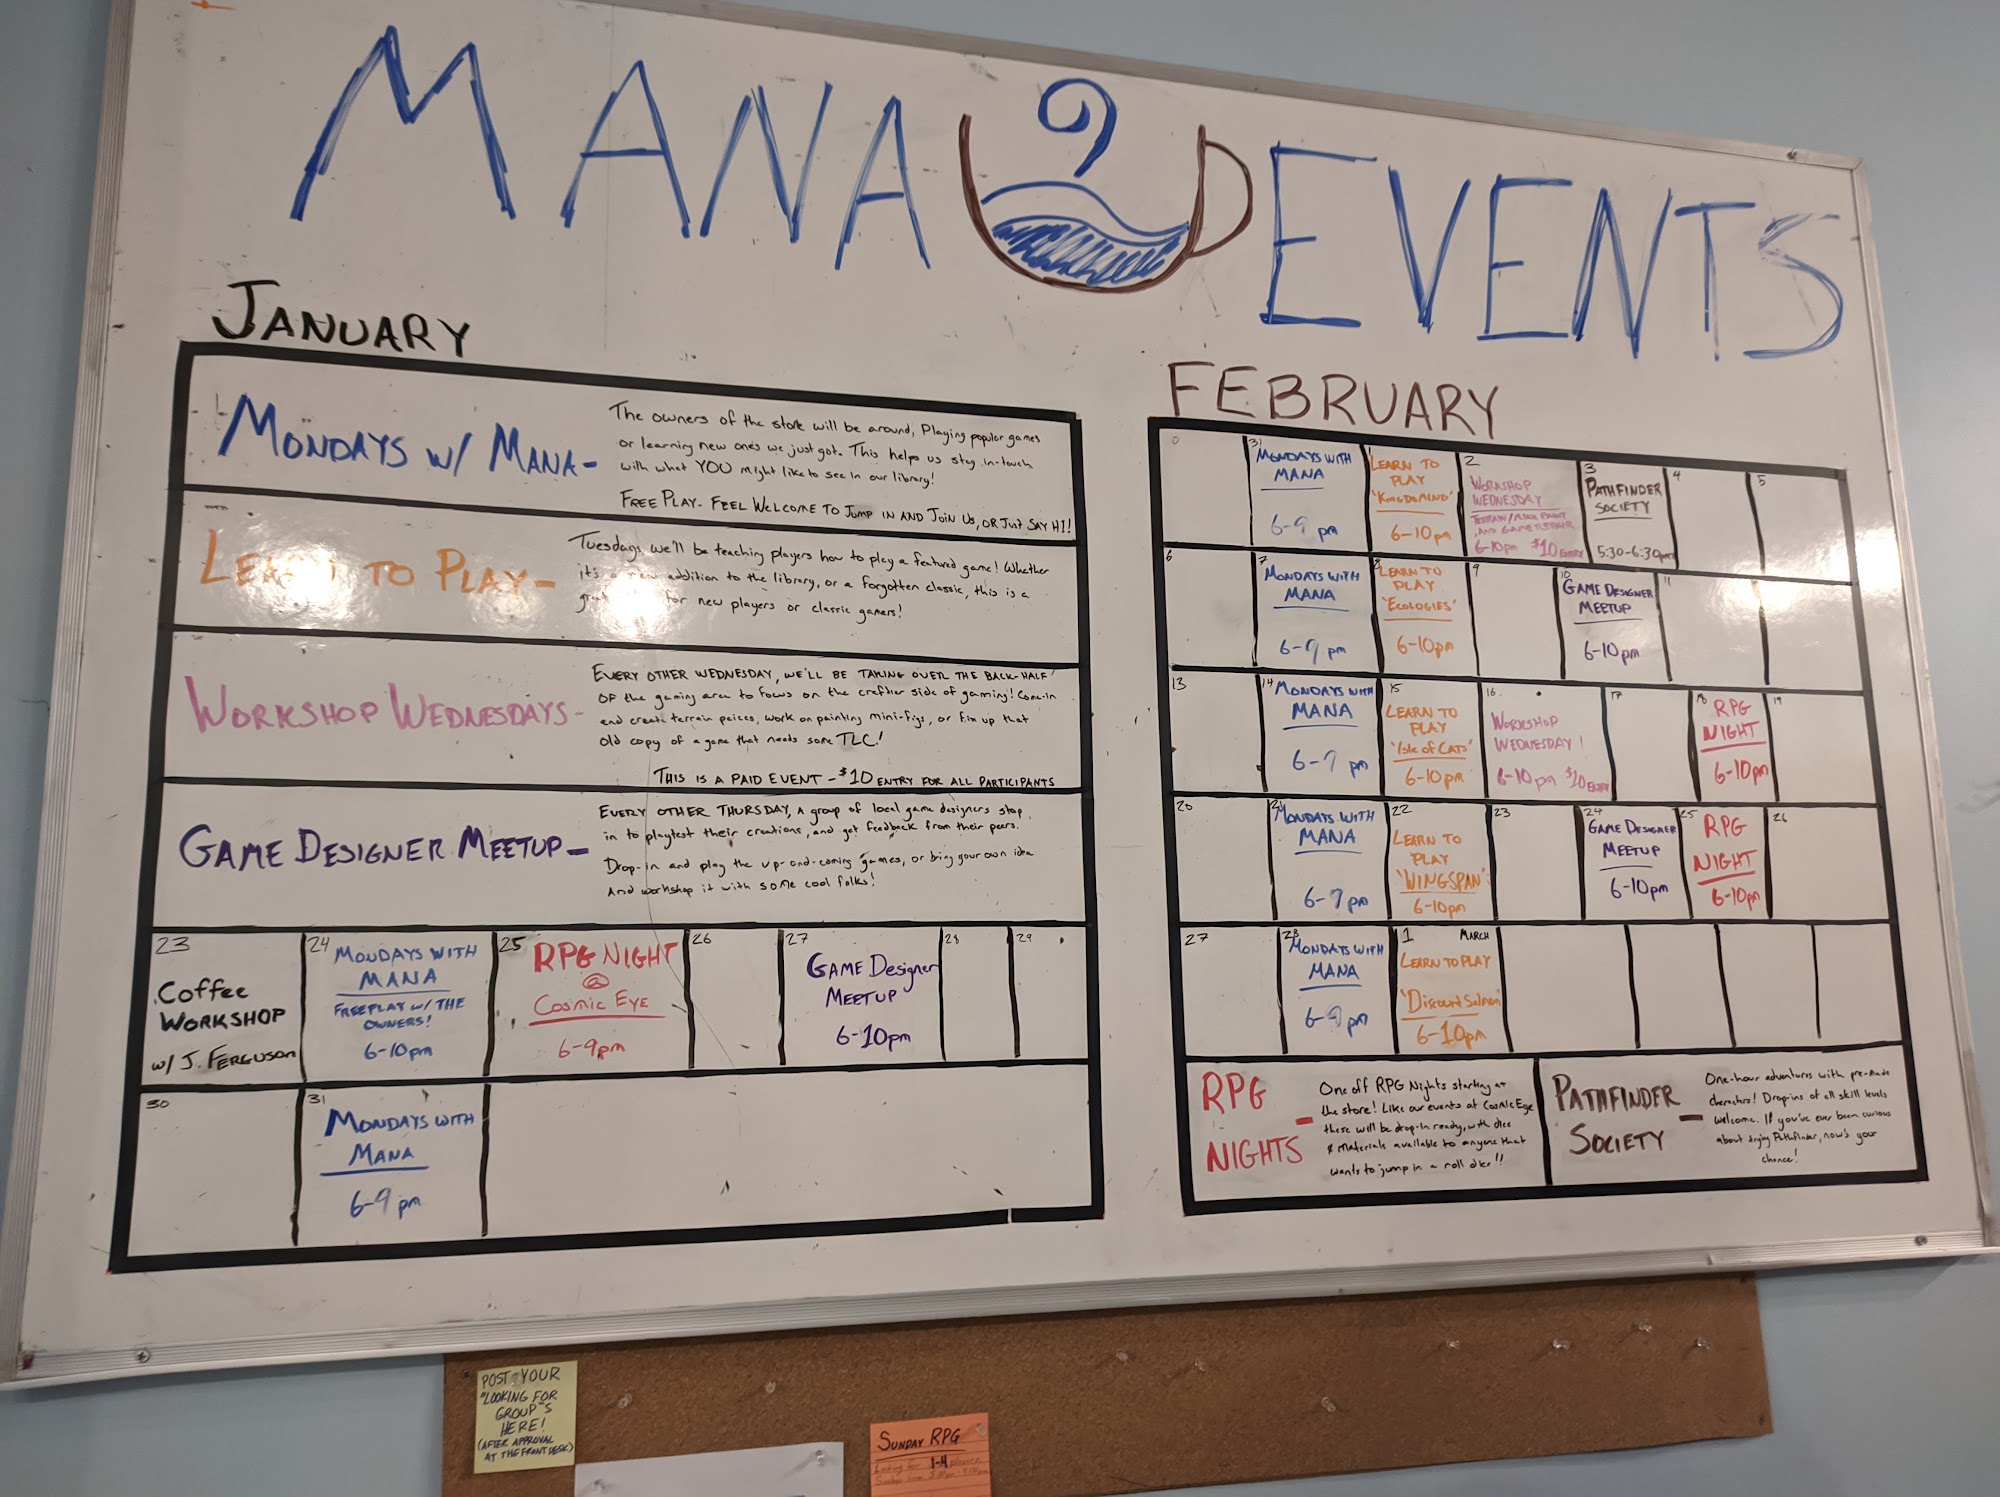 MANA EVENTS
JANUARY
MONDAYS W/ MANA-
The owners of the store will be around, Playing popular games
or learning new ones we just got. This helps us stay in-touch
with what YOU might like to see in our library!
FREE PLAY- FEEL WELCOME TO JUMP IN AND JOIN US, OR JUST SAY HI!
LEARN TO PLAY-
Tuesdays, we'll be teaching players how to play a featured game! Whether
it's a new addition to the library, or a forgotten classic, this is a
for new players or classic gamers!
WORKSHOP WEDNESDAYS-
EVERY OTHER WEDNESDAY, WE'LL BE TAKING OVER THE BACK-HALF
OF the gaming area to focus on the craftier side of gaming! Come-in
and create terrain peices, work on painting mini-figs, or fix up that
old copy of a game that needs some TLC!
THIS IS A PAID EVENT - $10 ENTRY FOR ALL PARTICIPANTS
GAME DESIGNER MEETUP-
EVERY OTHER THURSDAY, A group of local game designers stop
in to playtest their creations, and get feedback from their peers.
Drop-in and play the up-and-coming games, or bring your own idea
And workshop it with some cool folks!
23
Coffee
WORKSHOP
w/ J. FERGUSON
24
MONDAYS WITH
MANA
FREEPLAY W/ THE
OWNERS!
6-10pm
25
RPG NIGHT
@
COSMIC EYE
6-9pm
26
27
GAME Designer
MEETUP
6-10pm
28
29
30
31
MONDAYS WITH
MANA
6-9 pm
FEBRUARY
0
31
MONDAYS WITH
MANA
6-9 pm
1
LEARN TO
PLAY
'KINGDOMINO'
6-10pm
2
WORKSHOP
WEDNESDAY
TERRAIN/MINI PAINT
AND GAME REPAIR
6-10pm $10 ENTRY
3
PATHFINDER
SOCIETY
5:30-6:30pm
4
5
6
7
MONDAYS WITH
MANA
6-9 pm
8
LEARN TO
PLAY
'ECOLOGIES'
6-10pm
9
10
GAME DESIGNER
MEETUP
6-10pm
11
13
14
MONDAYS WITH
MANA
6-9 pm
15
LEARN TO
PLAY
'Isle of CATS'
6-10pm
16
WORKSHOP
WEDNESDAY!
6-10pm $10 ENTRY
17
18
RPG
NIGHT
6-10pm
19
20
21
MONDAYS WITH
MANA
6-9pm
22
LEARN TO
PLAY
'WINGSPAN'
6-10pm
23
24
GAME DESIGNER
MEETUP
6-10pm
25
RPG
NIGHT
6-10pm
26
27
28
MONDAYS WITH
MANA
6-9pm
1 MARCH
LEARN TO PLAY
'Discount Salmon'
6-10pm
RPG
NIGHTS -
One off RPG Nights starting at
the store! Like our events at Cosmic Eye
these will be drop-in ready, with dice
& materials available to anyone that
wants to jump in a roll dice!!
PATHFINDER
SOCIETY -
One-hour adventures with pre-made
characters! Drop-ins of all skill levels
welcome. If you've ever been curious
about trying Pathfinder, now's your
chance!
POST YOUR
"LOOKING FOR
GROUP"S
HERE!
(AFTER APPROVAL
AT THE FRONT DESK)
SUNDAY RPG
Looking for 1-4 players